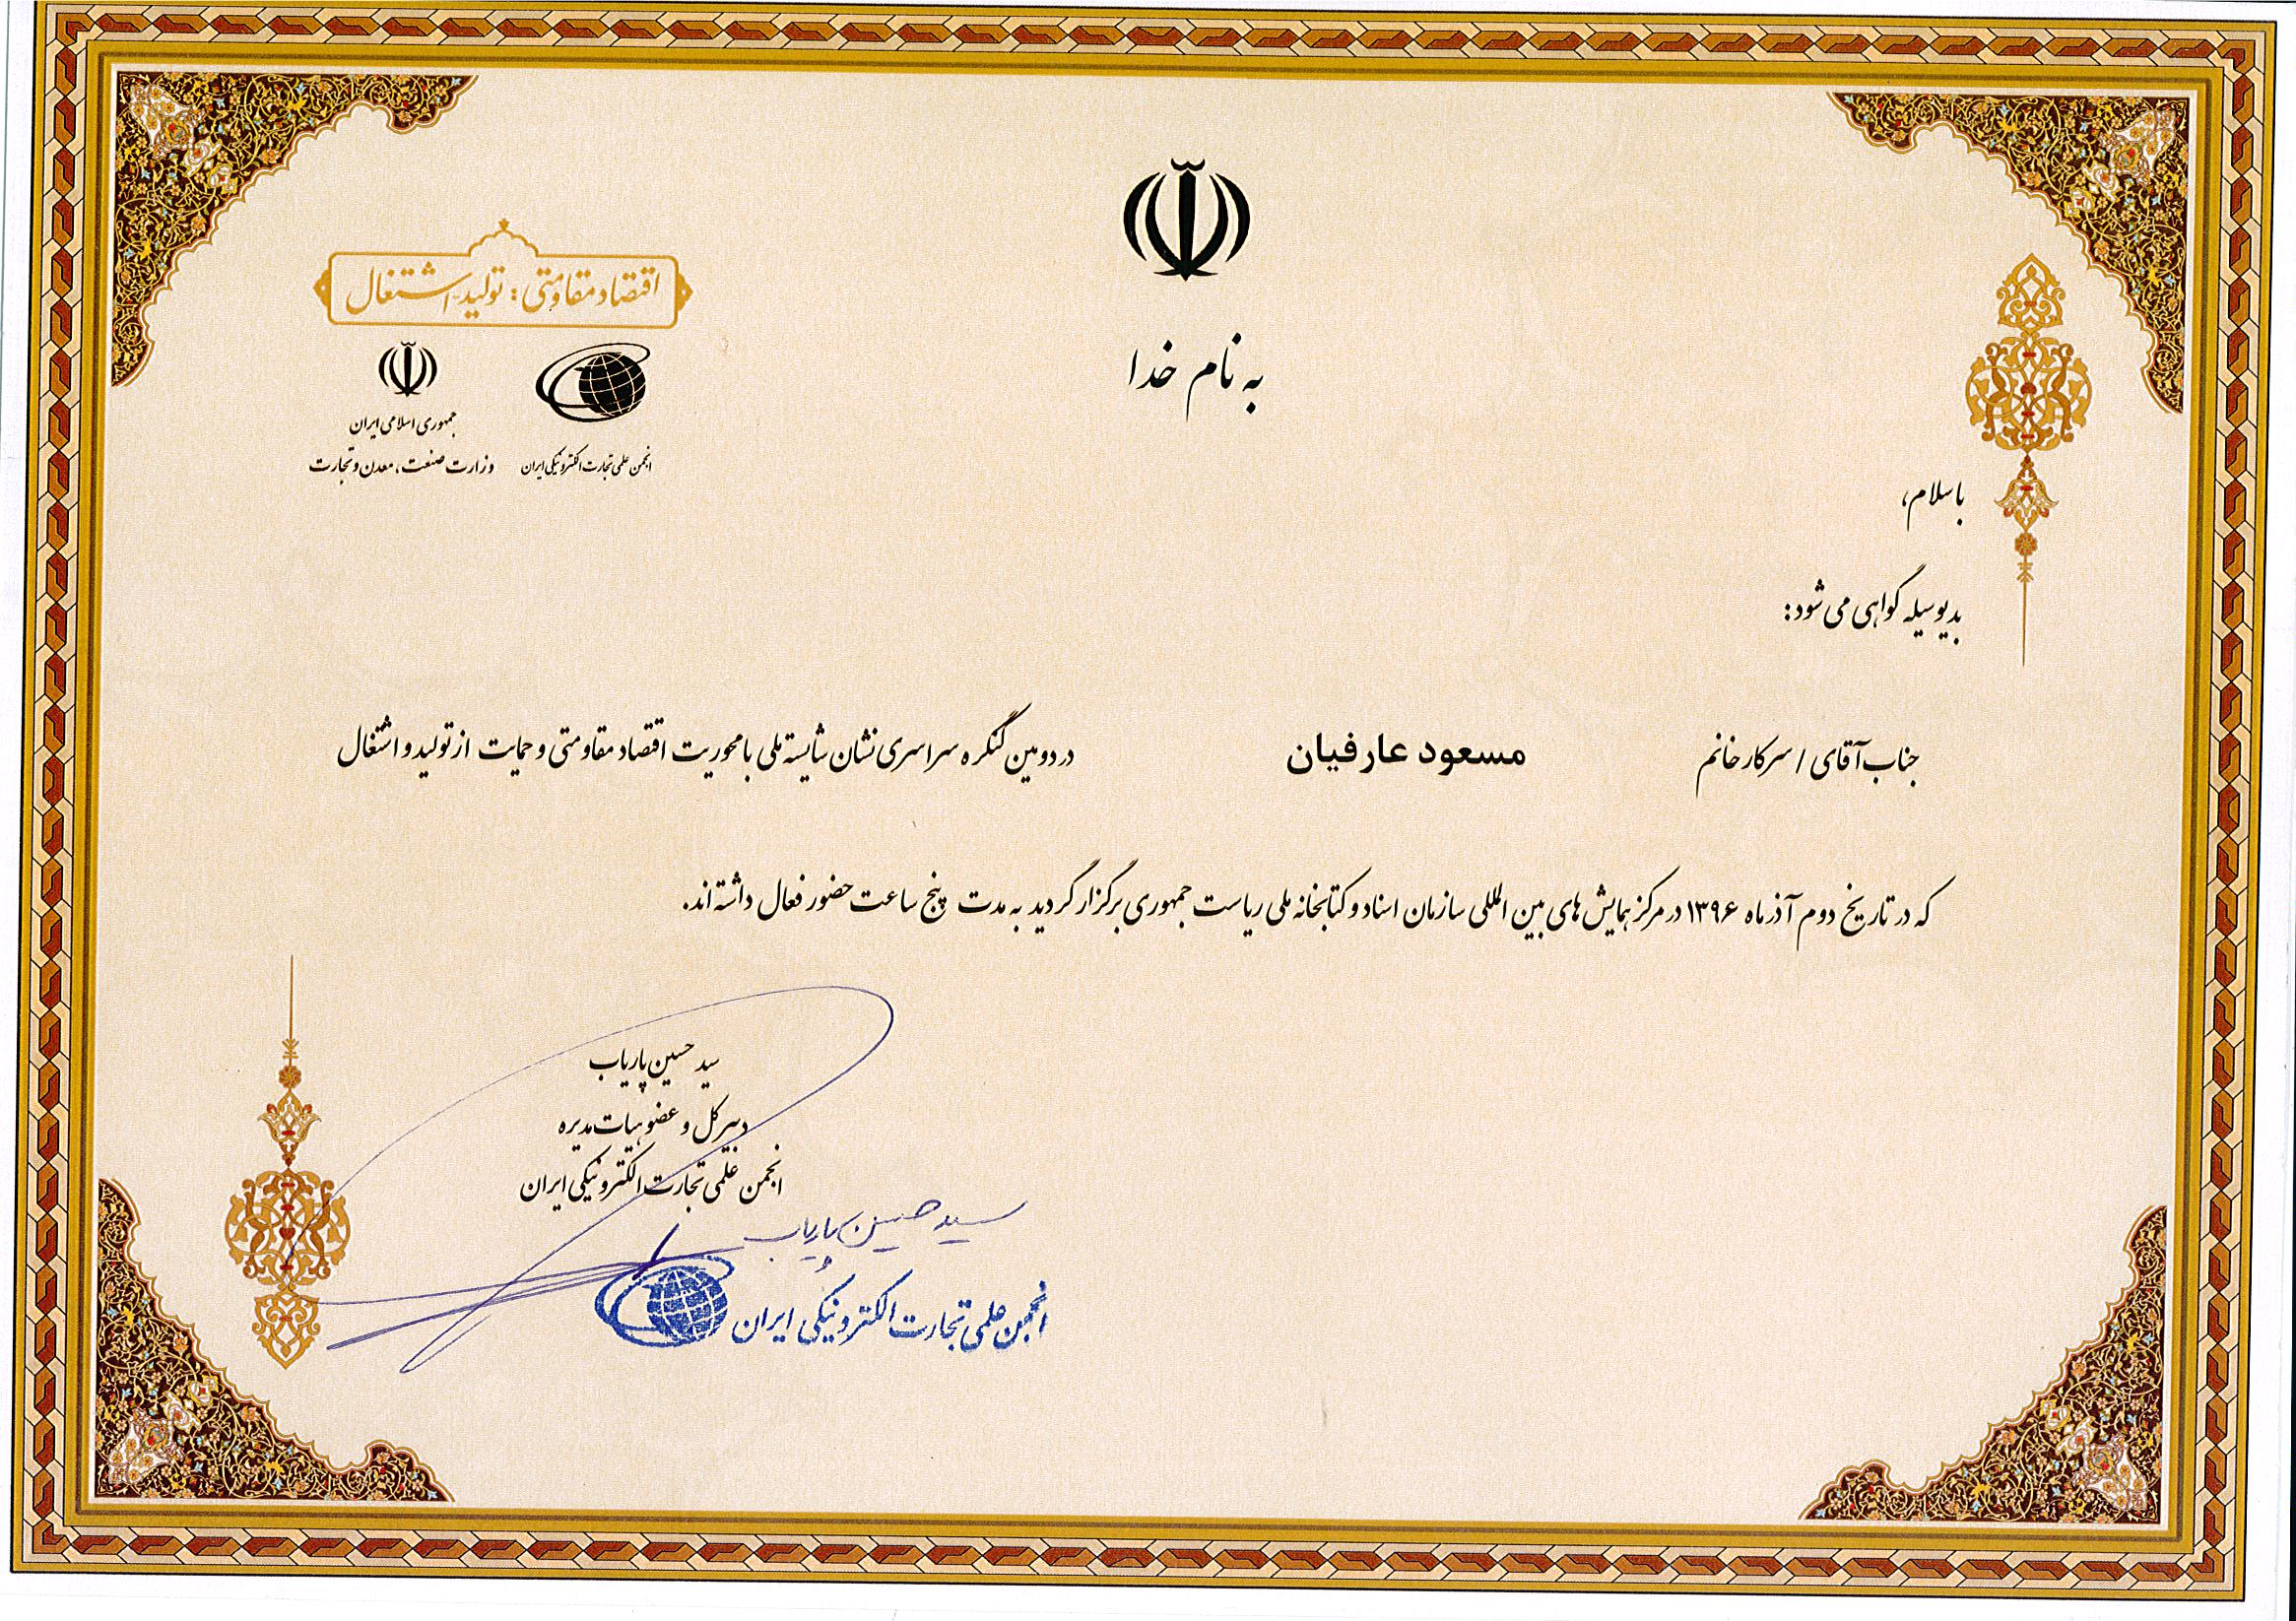 به نام خدا
اقتصاد مقاومتی: تولید-اشتغال
انجمن علمی تجارت الکترونیکی ایران
جمهوری اسلامی ایران
وزارت صنعت، معدن و تجارت
باسلام،
بدیوسیله گواهی می شود:
جناب آقای / سرکار خانم مسعود عارفیان در دومین کنگره سراسری نشان شایسته ملی با محوریت اقتصاد مقاومتی و حمایت از تولید و اشتغال
که در تاریخ دوم آذر ماه ۱۳۹۶ در مرکز همایش های بین المللی سازمان اسناد و کتابخانه ملی ریاست جمهوری برگزار گردید به مدت پنج ساعت حضور فعال داشته اند.
سید حسین پاریاب
دبیر کل و عضو هیات مدیره
انجمن علمی تجارت الکترونیکی ایران
سید حسین پاریاب
انجمن علمی تجارت الکترونیکی ایران